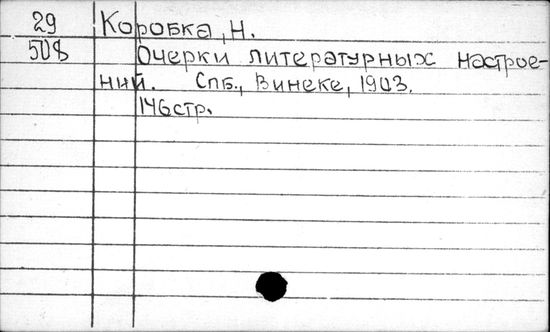 29 Коробка, Н.
508 Очерки литературных настрое-
ний. Спб., Винеке, 1903.
146стр.